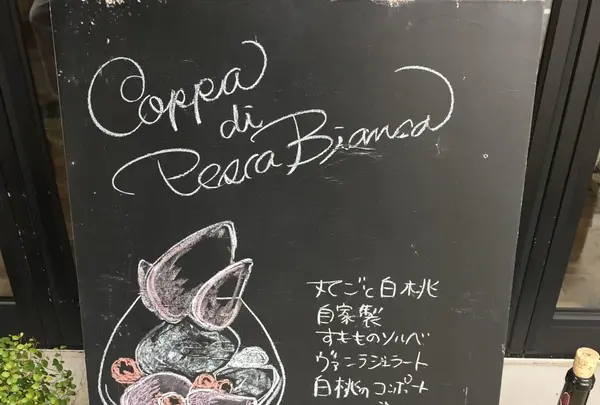 Coppa
di
Pesca Bianca
まるごと白桃
自家製
すもものソルベ
ヴァニラジェラート
白桃のコンポート